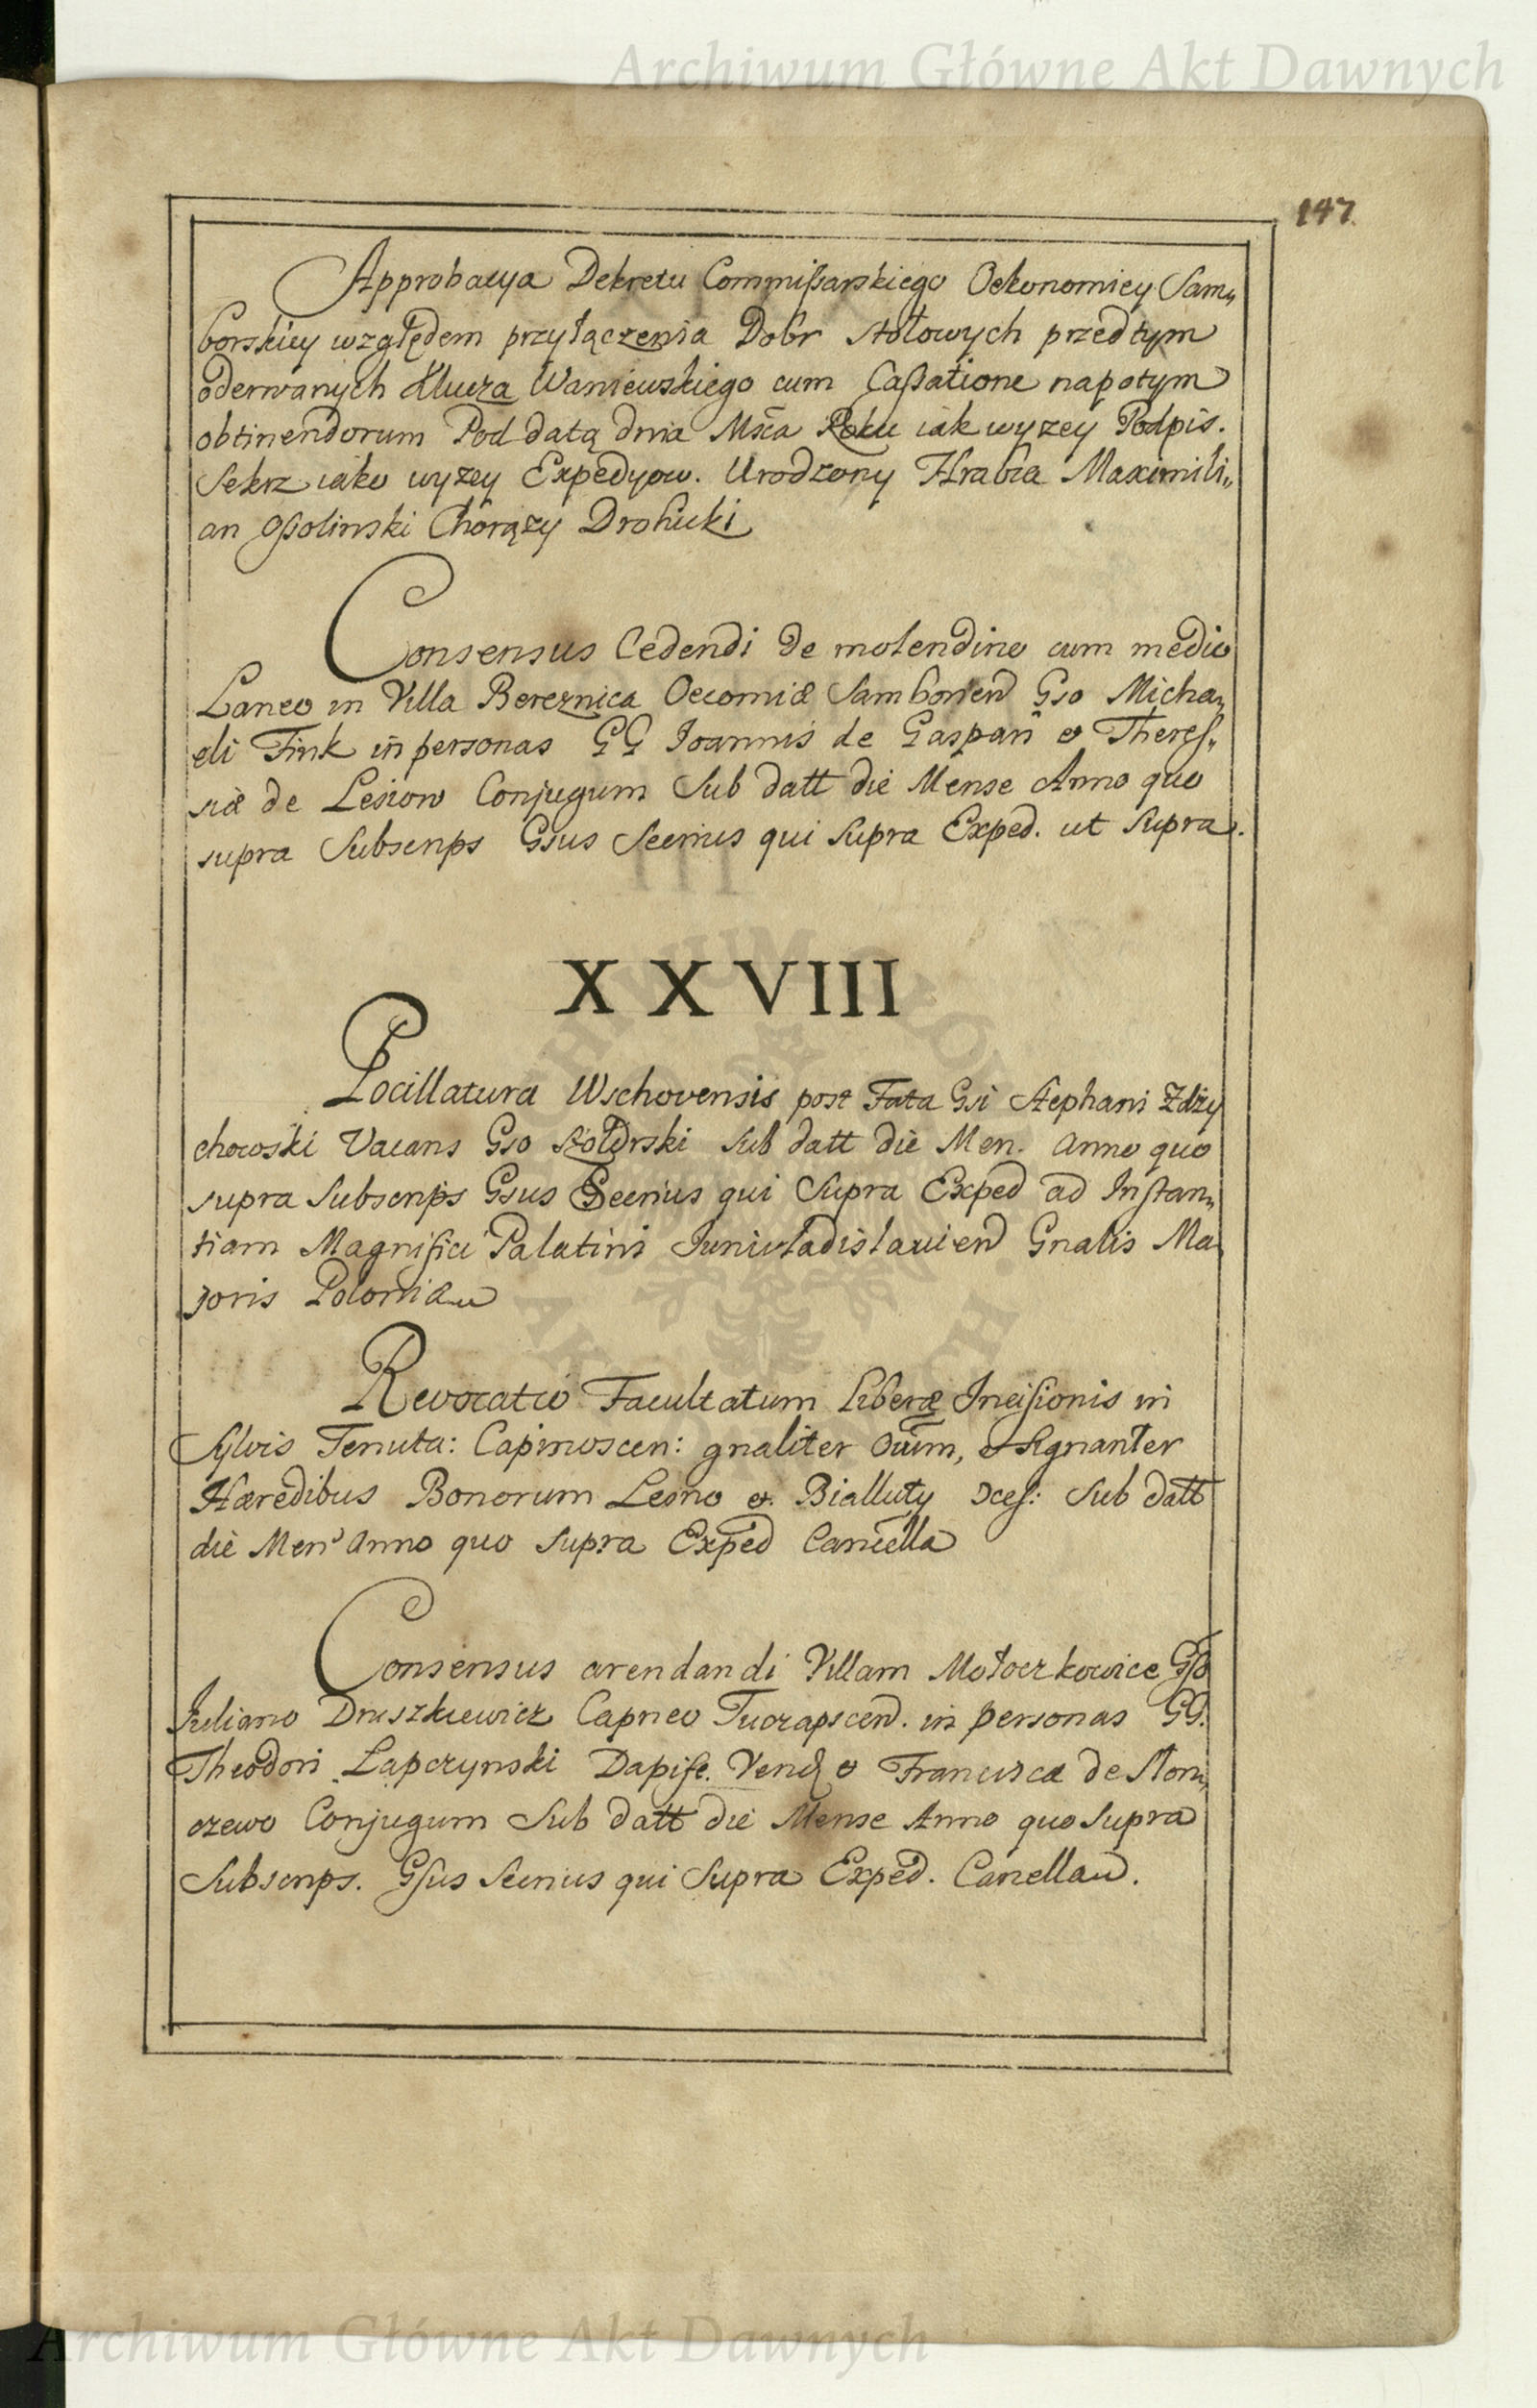 Archiwum Główne Akt Dawnych
147.
Approbacya Dekretu Commissarskiego Oekonomiey Sam„
borskiey względem przyłączenia Dobr stołowych przedtym
oderwanych Klucza Waniewskiego cum Cassatione napotym
obtinendorum Pod datą dnia Msca Roku iak wyzey Podpis.
Sekrz iako wyzey Expedyow. Urodzony Hrabia Maximili„
an Ossolinski Chorązy Drohicki
Consensus Cedendi de molendino cum medio
Laneo in Villa Bereznica Oecomiæ Samborien Gso Micha„
eli Fink in personas GG Joannis de Gaspari et Theres„
siæ de Lesiow Conjugum Sub datt die Mense Anno quo
supra Subscrips Gsus Secrius qui Supra Exped. ut Supra.
XXVIII
Pocillatura Wschovensis post Fata Gsi Stephani Zdży
chowski Vacans Gso Sub datt die Men. anno quo
supra Subscrips Gsus Secrius qui Supra Exped ad Instan„
tiam Magnifici Palatini Iuniwladislavien Gnalis Ma„
joris Poloniæ
Revocatio Facultatum liberæ Incisionis in
Sylvis Tenuta: Capinoscen: gnaliter Oium, et Signanter
Hæredibus Bonorum Lesno et Bialluty Sub datt
die Men Anno quo Supra Exped Cancella
Consensus arendandi Villam Mołoczkowice Gso
Juliano Druszkiewicz Capneo Tucrapscen. in personas GG.
Theodori Łapczynski Dapife. Vend et Francisca de Slom„
czewo Conjugum Sub datt die Mense Anno quo Supra
Subscrips. Gsus Secrius qui Supra Exped. Cancellau.
Archiwum Główne Akt Dawnych